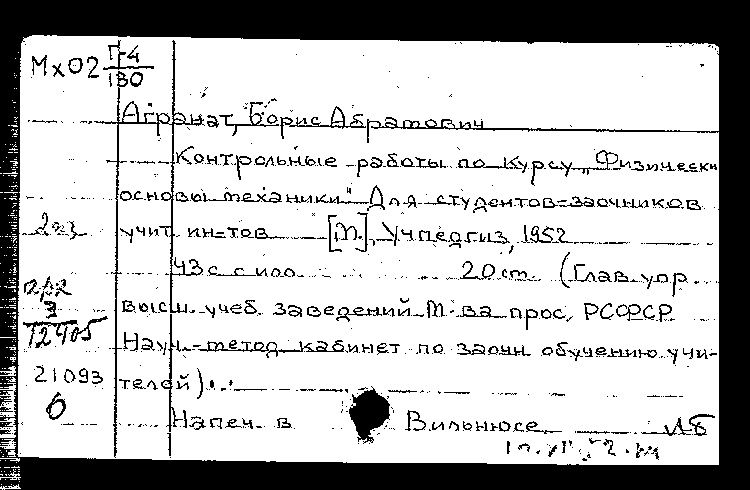 Мх02 Г-4
130
Агранат, Борис Абрамович
Контрольные работы по курсу „Физически
основы механики" Для студентов-заочников
2 экз
учит. ин-тов [М.], Учпедгиз, 1952
43 с с илл. 20 см. (Глав. упр.
высш. учеб. заведений М-ва прос. РСФСР
3
12405
Науч.-метод. кабинет по заочн. обучению учи-
21093 телей)
б
Напеч. в Вильнюсе